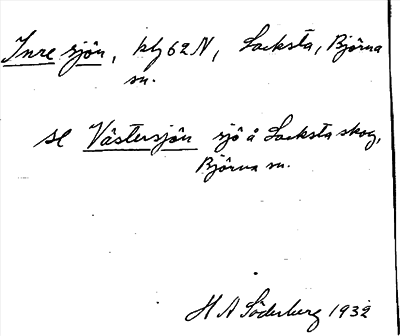 Inre sjön, blz 62 N, Lacksta, Björna
sn.
se Västersjön sjö å Lacksta skog,
Björna sn.
H A Söderberg 1932